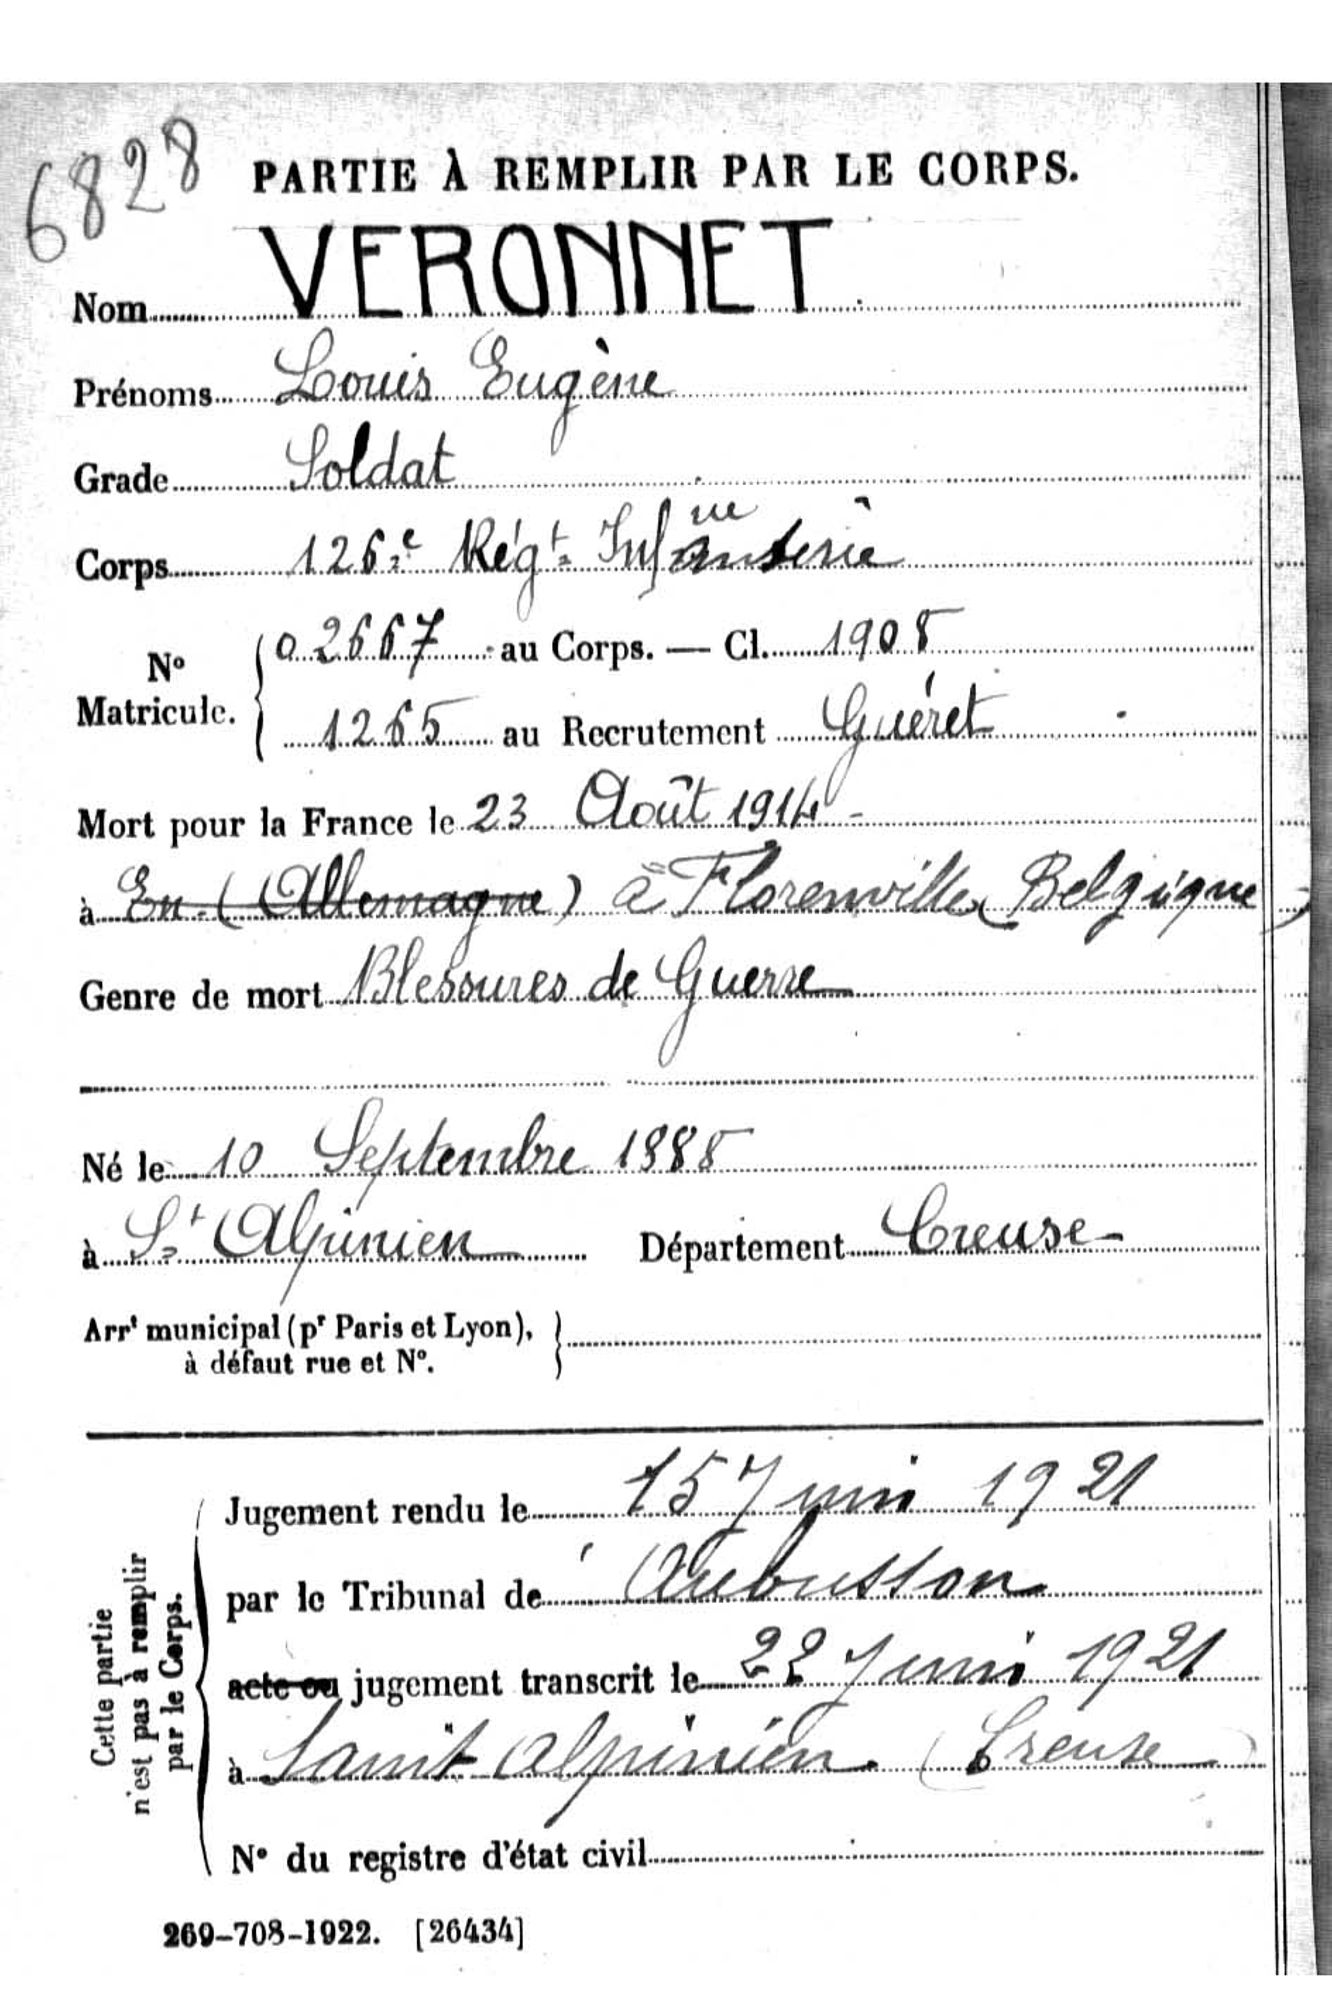 6828
PARTIE À REMPLIR PAR LE CORPS.
Nom VERONNET
Prénoms Louis Eugène
Grade Soldat
Corps 126e Régt Infanterie
N° Matricule. { 02667 au Corps. — Cl. 1908
1265 au Recrutement Guéret
Mort pour la France le 23 Août 1914 -
à En (Allemagne) à Florenville (Belgique)
Genre de mort Blessures de Guerre
Né le 10 Septembre 1888
à St Alpinien Département Creuse
Arrt municipal (pr Paris et Lyon), }
à défaut rue et N°.
Cette partie
n'est pas à remplir
par le Corps.
Jugement rendu le 15 Juin 1921
par le Tribunal de Aubusson
acte ou jugement transcrit le 22 Juin 1921
à Saint Alpinien (Creuse)
N° du registre d'état civil
269-708-1922. [26434]